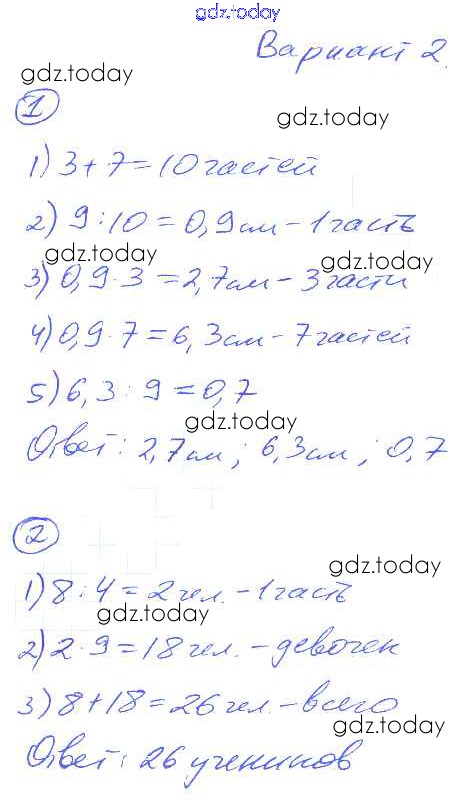 gdz.today
Вариант 2.
gdz.today
1
gdz.today
1) 3+7=10 частей
2) 9:10=0,9см-1часть
gdz.today
gdz.today
3) 0,9·3=2,7см-3части
4) 0,9·7=6,3см-7частей
5) 6,3:9=0,7
gdz.today
Ответ: 2,7см; 6,3см; 0,7
2
gdz.today
1) 8:4=2чел.-1часть
gdz.today
2) 2·9=18чел.-девочек
3) 8+18=26чел.-всего
gdz.today
Ответ: 26 учеников